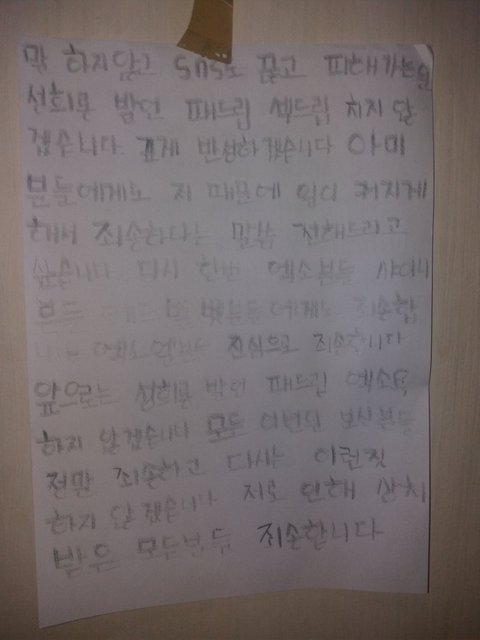 막 하지않고 SnS도 끊고 피해가는일
성희롱 발언 패드립 섹드립 치지 않
겠습니다 깊게 반성하겠습니다 아미
분들에게도 저 때문에 일이 커지게
해서 죄송하다는 말씀 전해드리고
싶습니다 다시 한번 엑소분들 샤이니
분들 분들에게도 죄송합
니다 엑소엘분들 진심으로 죄송합니다
앞으로는 성희롱 발언 패드립 섹드립
하지 않겠습니다 모든 이번일 보신분들
정말 죄송하고 다시는 이런짓
하지 않겠습니다 저로 인해 상처
받은 모두분들 죄송합니다